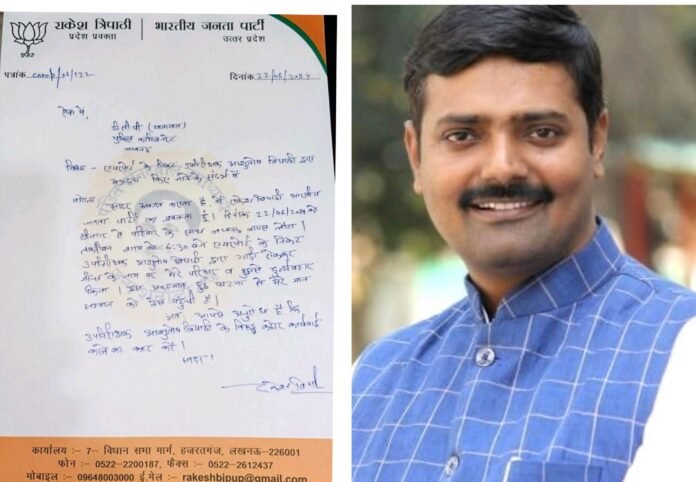 राकेश त्रिपाठी
प्रदेश प्रवक्ता
भारतीय जनता पार्टी
उत्तर प्रदेश
भाजपा
पत्रांक
दिनांक 27/06/2024
सेवा में,
डी सी पी
पुलिस कमिश्नरेट
लखनऊ
विषय - एयरपोर्ट के निकट उपनिरीक्षक आशुतोष त्रिपाठी द्वारा
किए जाने के संदर्भ में
महोदय सादर अवगत कराना है मैं राकेश त्रिपाठी भारतीय
जनता पार्टी का प्रवक्ता हूँ। दिनांक 22/06/2024 को
से परिवार के साथ लखनऊ वापस लौटा।
शाम को 6:30 बजे एयरपोर्ट के निकट
उपनिरीक्षक आशुतोष त्रिपाठी द्वारा गाड़ी रोककर
के नाम पर मेरे परिवार व मुझसे दुर्व्यवहार
किया। इस हुई घटना से मेरे मान
सम्मान को ठेस पहुँची है।
अतः आपसे अनुरोध है कि
उपनिरीक्षक आशुतोष त्रिपाठी के विरुद्ध कठोर कार्यवाई
करने का कष्ट करें।
सादर।
कार्यालय :- 7- विधान सभा मार्ग, हजरतगंज, लखनऊ-226001
फोन :- 0522-2200187, फैक्स :- 0522-2612437
मोबाइल :- 09648003000 ई.मेल :- rakeshbjpup@gmail.com